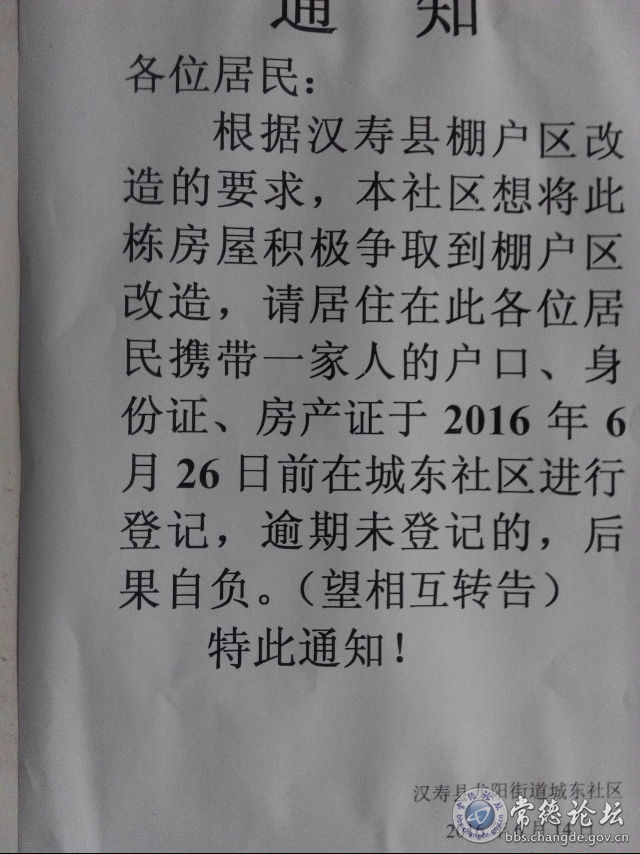 通 知
各位居民：
根据汉寿县棚户区改
造的要求，本社区想将此
栋房屋积极争取到棚户区
改造，请居住在此各位居
民携带一家人的户口、身
份证、房产证于 2016 年 6
月 26 日前在城东社区进行
登记，逾期未登记的，后
果自负。（望相互转告）
特此通知！
汉寿县龙阳街道城东社区
月 14 日
常德论坛
bbs.changde.gov.cn